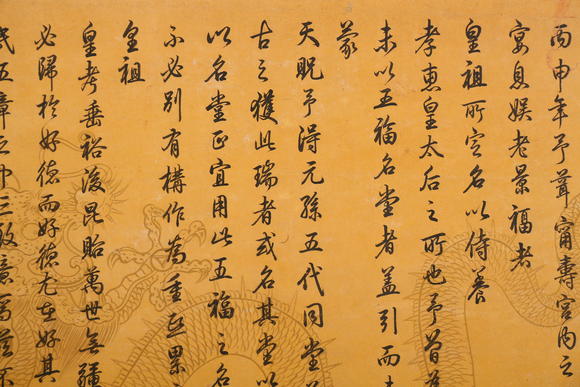 丙申年予葺甯壽宮內之
宴息娛老景福者
皇祖所定名以侍養
孝惠皇太后之所也予曾
未以五福名堂者蓋引而
蒙
天貺予得元孫五代同堂
古之獲此瑞者或名其堂以
以名堂正宜用此五福之名
不必別有構作為重熙累
皇祖
皇考垂裕後昆貽萬世無疆
必歸於好德而好德尤在好其
五章之中三致意焉茲